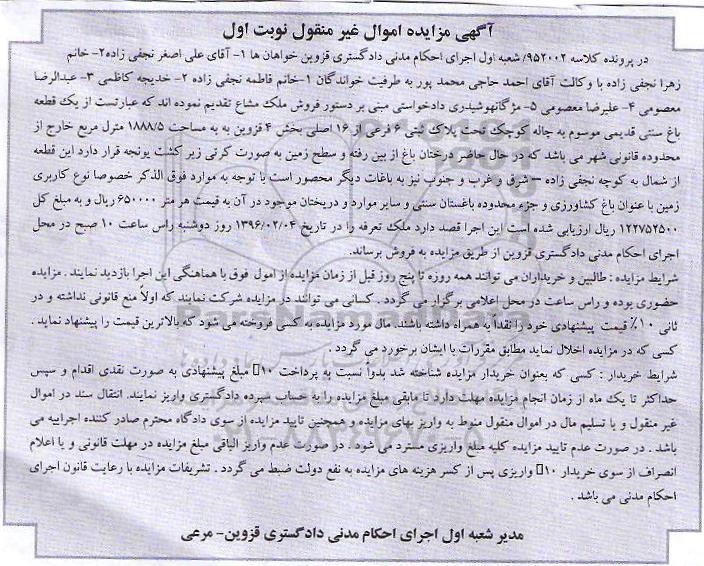 آگهی مزایده اموال غیر منقول نوبت اول
در پرونده کلاسه ۹۵۲۰۰۲/ شعبه اول اجرای احکام مدنی دادگستری قزوین خواهان ها ۱- آقای علی اصغر نجفی زاده۲- خانم
زهرا نجفی زاده با وکالت آقای احمد حاجی محمد پور به طرفیت خواندگان ۱-خانم فاطمه نجفی زاده ۲- خدیجه کاظمی ۳- عبدالرضا
معصومی ۴- علیرضا معصومی ۵- مژگانهوشیدری دادخواستی مبنی بر دستور فروش ملک مشاع تقدیم نموده اند که عبارتست از یک قطعه
باغ سنتی قدیمی موسوم به چاله کوچک تحت پلاک ثبتی ۶ فرعی از ۱۶ اصلی بخش ۴ قزوین به به مساحت ۱۸۸۸/۵ مترل مربع خارج از
محدوده قانونی شهر می باشد که در حال حاضر درختان باغ از بین رفته و سطح زمین به صورت کرتی زیر کشت یونجه قرار دارد این قطعه
از شمال به کوچه نجفی زاده – شرق و غرب و جنوب نیز به باغات دیگر محصور است با توجه به موارد فوق الذکر خصوصا نوع کاربری
زمین با عنوان باغ کشاورزی و جزء محدوده باغستان سنتی و سایر موارد و دریختان موجود در آن به قیمت هر متر ۶۵۰۰۰۰ ریال و به مبلغ کل
۱۲۲۷۵۲۵۰۰ ریال ارزیابی شده است این اجرا قصد دارد ملک تعرفه را در تاریخ ۱۳۹۶/۰۲/۰۴ روز دوشنبه راس ساعت ۱۰ صبح در محل
اجرای احکام مدنی دادگستری قزوین از طریق مزایده به فروش برساند.
شرایط مزایده : طالبین و خریداران می توانند همه روزه تا پنج روز قبل از زمان مزایده از امول فوق با هماهنگی این اجرا بازدید نمایند . مزایده
حضوری بوده و راس ساعت در محل اعلامی برگزار می گردد . کسانی می توانند در مزایده شرکت نمایند که اولاً منع قانونی نداشته و در
ثانی ۱۰٪ قیمت پیشنهادی خود را نقدا به همراه داشته باشند. مال مورد مزایده به کسی فروخته می شود که بالاترین قیمت را پیشنهاد نماید .
کسی که در مزایده اخلال نماید مطابق مقررات با ایشان برخورد می گردد .
شرایط خریدار : کسی که بعنوان خریدار مزایده شناخته شد بدواً نسبت به پرداخت ۱۰▯ مبلغ پیشنهادی به صورت نقدی اقدام و سپس
حداکثر تا یک ماه از زمان انجام مزایده مهلت دارد تا مابقی مبلغ مزایده را به حساب سپرده دادگستری واریز نمایند. انتقال سند در اموال
غیر منقول و یا تسلیم مال در اموال منقول منوط به واریز بهای مزایده و همچنین تایید مزایده از سوی دادگاه محترم صادر کننده اجراییه می
باشد . در صورت عدم تایید مزایده کلیه مبلغ واریزی مسترد می شود . در صورت عدم واریز الباقی مبلغ مزایده در مهلت قانونی و یا اعلام
انصراف از سوی خریدار ۱۰▯ واریزی پس از کسر هزینه های مزایده به نفع دولت ضبط می گردد . تشریفات مزایده با رعایت قانون اجرای
احکام مدنی می باشد .
مدیر شعبه اول اجرای احکام مدنی دادگستری قزوین- مرعی
ParsNamadData